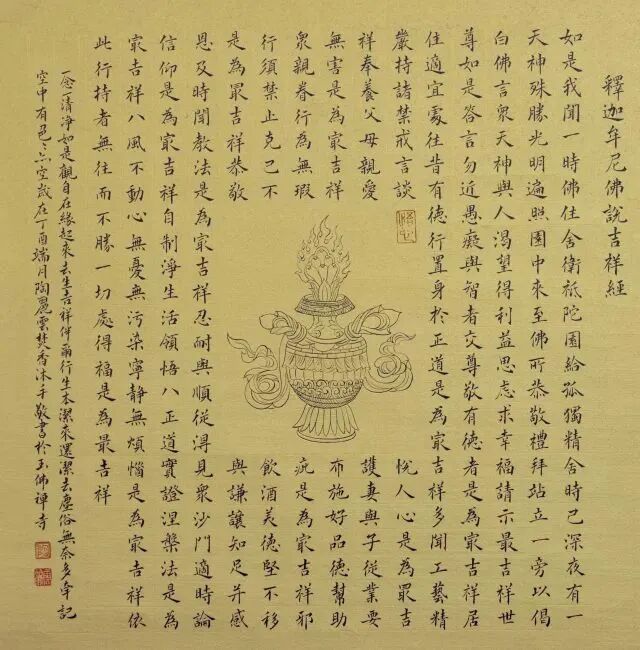 釋迦牟尼佛說吉祥經
如是我聞一時佛住舍衛祗陀園給孤獨精舍時已深夜有一
天神殊勝光明遍照園中來至佛所恭敬禮拜站立一旁以偈
白佛言眾天神與人渴望得利益思慮求幸福請示最吉祥世
尊如是答言勿近愚癡與智者交尊敬有德者是為最吉祥居
住適宜處往昔有德行置身於正道是為最吉祥多聞工藝精
嚴持諸禁戒言談悅人心是為最吉
祥奉養父母親愛護妻與子從業要
無害是為最吉祥布施好品德幫助
眾親眷行為無瑕疵是為最吉祥邪
行須禁止克己不飲酒美德堅不移
是為最吉祥恭敬與謙讓知足并感
恩及時聞教法是為最吉祥忍耐與順從得見眾沙門適時論
信仰是為最吉祥自制淨生活領悟八正道實證涅槃法是為
最吉祥八風不動心無憂無污染寧靜無煩惱是為最吉祥依
此行持者無往而不勝一切處得福是為最吉祥
一念一清淨如是觀自在緣起來去生吉祥伴爾行生本潔來還潔去塵俗無奈多牢記
空中有色〻亦空歲在丁酉端月陶麗雲焚香沐手敬書於玉佛禪寺